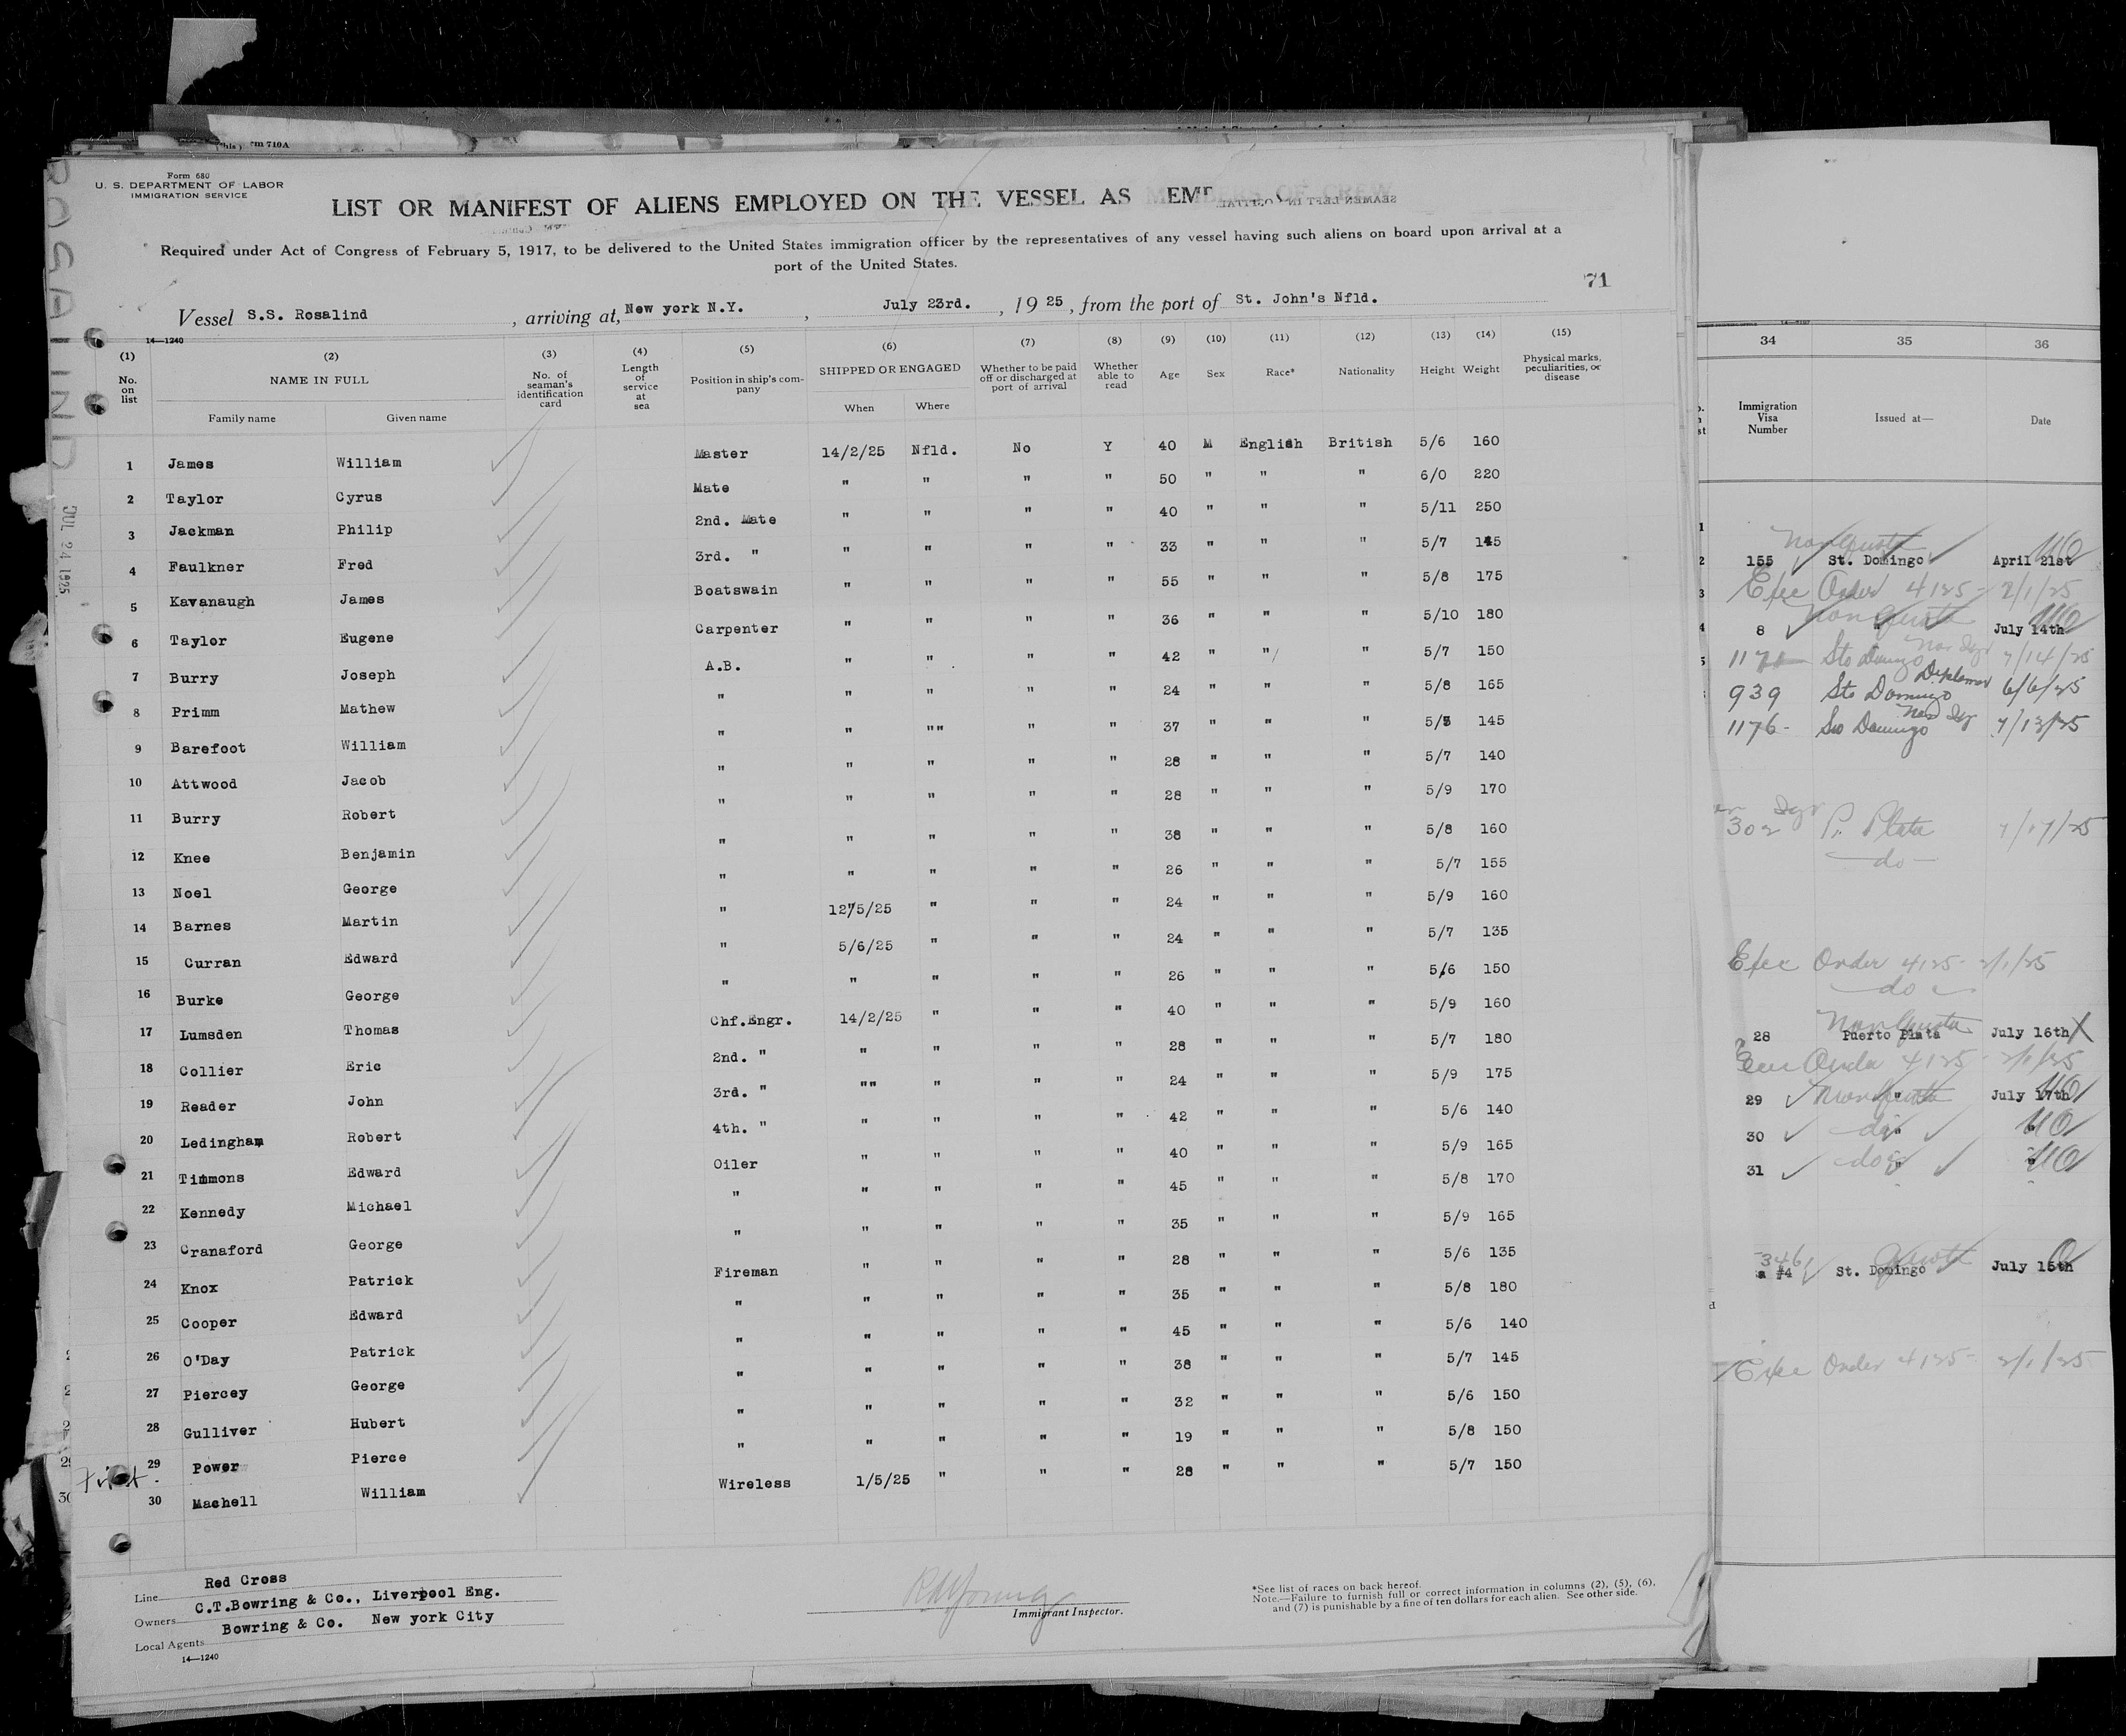 (This) rm 710A
Form 680
U. S. DEPARTMENT OF LABOR
IMMIGRATION SERVICE
LIST OR MANIFEST OF ALIENS EMPLOYED ON THE VESSEL AS MEMBERS OF CREW
SEAMEN LEFT IN HOSPITAL
Required under Act of Congress of February 5, 1917, to be delivered to the United States immigration officer by the representatives of any vessel having such aliens on board upon arrival at a
port of the United States.
71
Vessel S.S. Rosalind, arriving at, New york N.Y., July 23rd., 1925, from the port of St. John's Nfld.
14—1240
(1) (2) (3) (4) (5) (6) (7) (8) (9) (10) (11) (12) (13) (14) (15)
No. on list NAME IN FULL No. of seaman's identification card Length of service at sea Position in ship's company SHIPPED OR ENGAGED Whether to be paid off or discharged at port of arrival Whether able to read Age Sex Race* Nationality Height Weight Physical marks, peculiarities, or disease
Family name Given name When Where
1 James William Master 14/2/25 Nfld. No Y 40 M English British 5/6 160
2 Taylor Cyrus Mate " " " " 50 " " " 6/0 220
3 Jackman Philip 2nd. Mate " " " " 40 " " " 5/11 250
4 Faulkner Fred 3rd. " " " " " 33 " " " 5/7 145
5 Kavanaugh James Boatswain " " " " 55 " " " 5/8 175
6 Taylor Eugene Carpenter " " " " 36 " " " 5/10 180
7 Burry Joseph A.B. " " " " 42 " " " 5/7 150
8 Primm Mathew " " " " " 24 " " " 5/8 165
9 Barefoot William " " "" " " 37 " " " 5/5 145
10 Attwood Jacob " " " " " 28 " " " 5/7 140
11 Burry Robert " " " " " 28 " " " 5/9 170
12 Knee Benjamin " " " " " 38 " " " 5/8 160
13 Noel George " " " " " 26 " " " 5/7 155
14 Barnes Martin " 12/5/25 " " " 24 " " " 5/9 160
15 Curran Edward " 5/6/25 " " " 24 " " " 5/7 135
16 Burke George " " " " " 26 " " " 5/6 150
17 Lumsden Thomas Chf.Engr. 14/2/25 " " " 40 " " " 5/9 160
18 Collier Eric 2nd. " " " " " 28 " " " 5/7 180
19 Reader John 3rd. " "" " " " 24 " " " 5/9 175
20 Ledingham Robert 4th. " " " " " 42 " " " 5/6 140
21 Timmons Edward Oiler " " " " 40 " " " 5/9 165
22 Kennedy Michael " " " " " 45 " " " 5/8 170
23 Cranaford George " " " " " 35 " " " 5/9 165
24 Knox Patrick Fireman " " " " 28 " " " 5/6 135
25 Cooper Edward " " " " " 35 " " " 5/8 180
26 O'Day Patrick " " " " " 45 " " " 5/6 140
27 Piercey George " " " " " 38 " " " 5/7 145
28 Gulliver Hubert " " " " " 32 " " " 5/6 150
29 Power Pierce " " " " " 19 " " " 5/8 150
30 Machell William Wireless 1/5/25 " " " 28 " " " 5/7 150
Line Red Cross
Owners C.T.Bowring & Co., Liverpool Eng.
Local Agents Bowring & Co. New york City
14—1240
Immigrant Inspector.
*See list of races on back hereof.
Note.—Failure to furnish full or correct information in columns (2), (5), (6),
and (7) is punishable by a fine of ten dollars for each alien. See other side.
ROSALIND
JUL 24 1925
34 35 36
Immigration Visa Number Issued at— Date
Non Quota
155 St. Domingo April 21st
Exec Order 4125 - 2/1/25
Non Quota
8 " July 14th
1171 Sto Domingo 7/14/25
939 Sto Domingo Diplomat 6/6/25
1176 - Sto Domingo 7/13/25
302 P. Plata 7/17/25
do
Exec Order 4125 - 2/1/25
do
Non Quota
28 Puerto Plata July 16th
Exec Order 4125 - 2/1/25
29 Non Quota " July 17th
30 do " "
31 do " "
346
a #4 St. Domingo Quota July 15th
Exec Order 4125 - 2/1/25